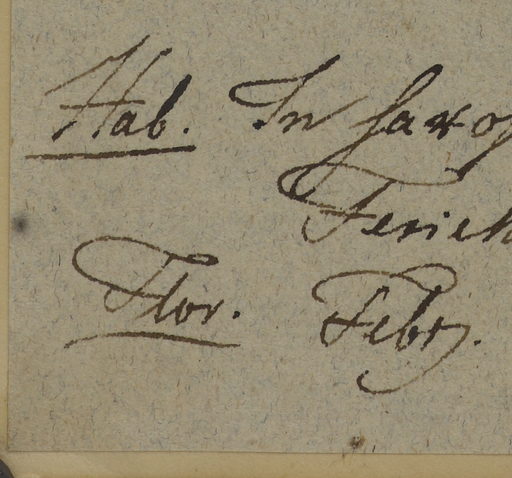 Hab. In saxo
Terick
Flor. Febr.